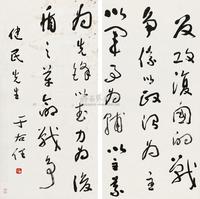 反攻復國的戰
爭係以政治為主
以軍事為輔以主義
為先鋒以武力為後
盾之革命戰爭
健民先生 于右任